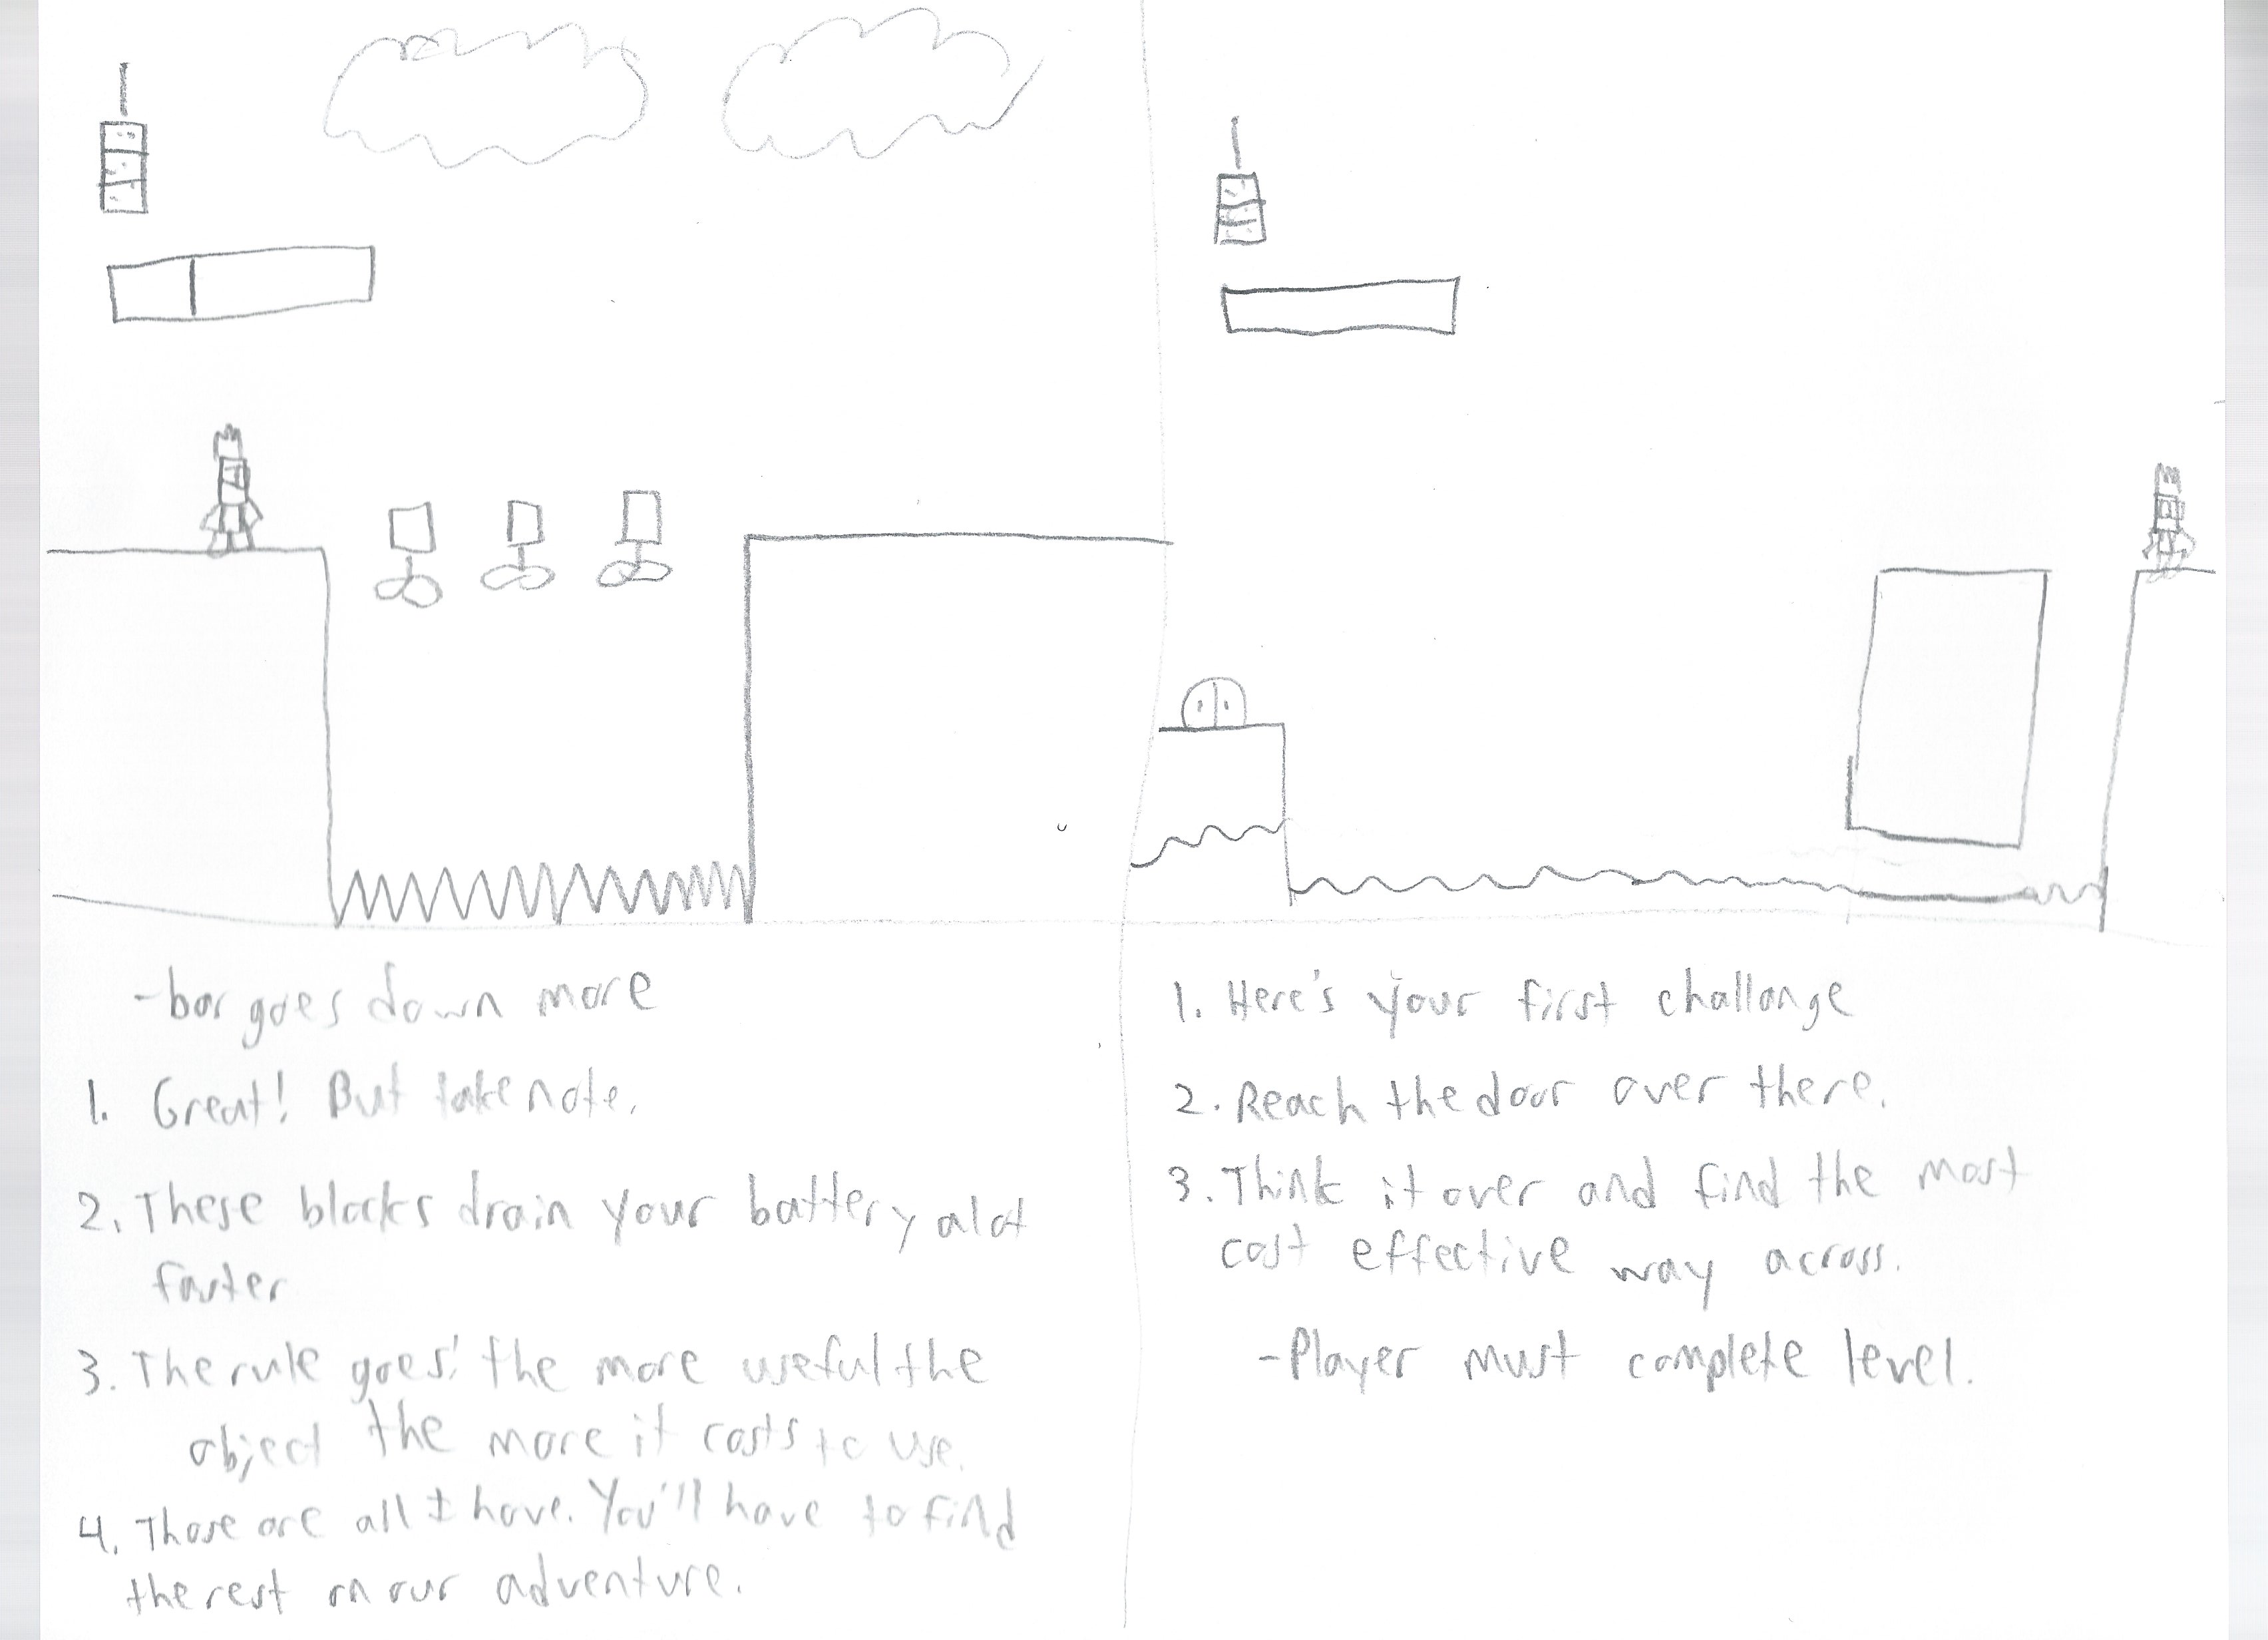 -bar goes down more
1. Great! But take note.
2. These blocks drain your battery alot
faster
3. The rule goes: the more useful the
object the more it costs to use.
4. Those are all I have. You'll have to find
the rest on our adventure.
1. Here's your first challange
2. Reach the door over there.
3. Think it over and find the most
cost effective way across.
-Player must complete level.